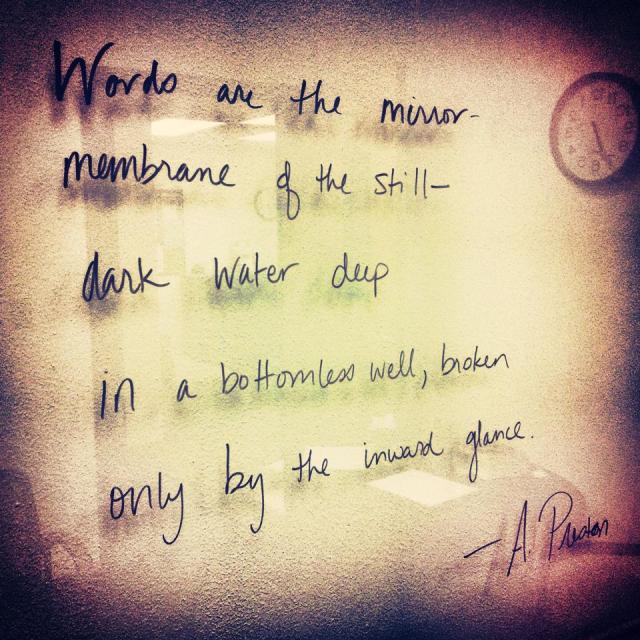 Words are the mirror-
membrane of the still-
dark water deep
in a bottomless well, broken
only by the inward glance.
- A. Preston